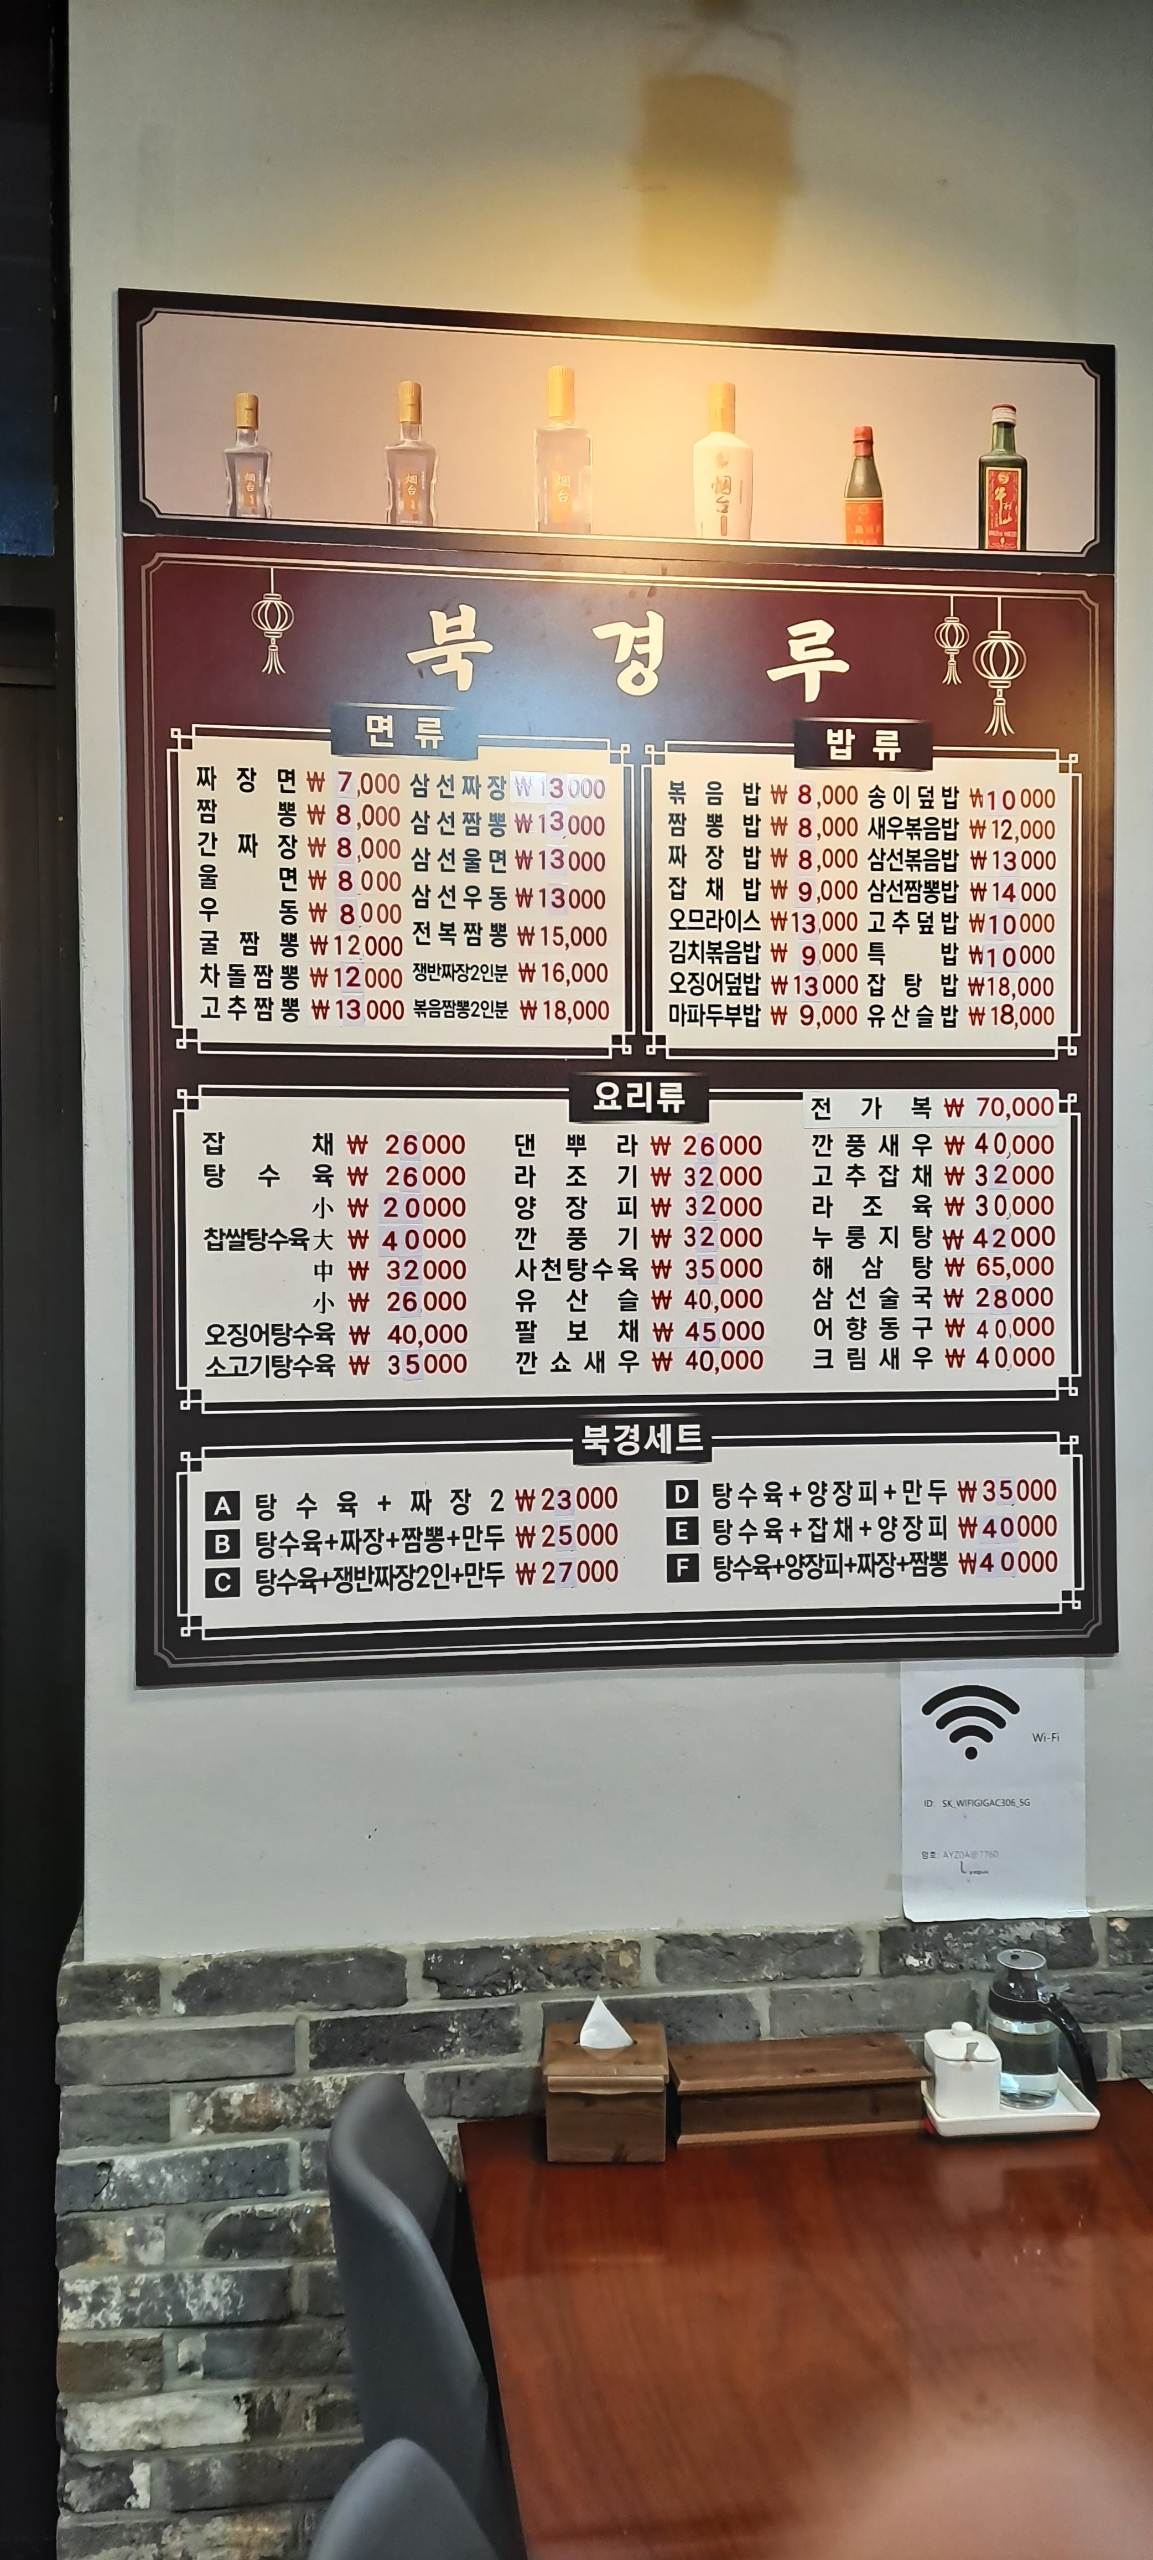 烟台
烟台
烟台
烟台
북경루
면류
짜장면 ₩ 7,000 삼선짜장 ₩13000
짬뽕 ₩ 8,000 삼선짬뽕 ₩13,000
간짜장 ₩ 8,000 삼선울면 ₩13000
울면 ₩ 8000 삼선우동 ₩13000
우동 ₩ 8000 전복짬뽕 ₩15,000
굴짬뽕 ₩12,000 쟁반짜장2인분 ₩16,000
차돌짬뽕 ₩12000 볶음짬뽕2인분 ₩18,000
고추짬뽕 ₩13000
밥류
볶음밥 ₩ 8,000 송이덮밥 ₩10000
짬뽕밥 ₩ 8,000 새우볶음밥 ₩12,000
짜장밥 ₩ 8,000 삼선볶음밥 ₩13000
잡채밥 ₩ 9,000 삼선짬뽕밥 ₩14000
오므라이스 ₩13,000 고추덮밥 ₩10000
김치볶음밥 ₩ 9,000 특밥 ₩10000
오징어덮밥 ₩13000 잡탕밥 ₩18,000
마파두부밥 ₩ 9,000 유산슬밥 ₩18,000
요리류
잡채 ₩ 26000
탕수육 ₩ 26000
小 ₩ 20000
찹쌀탕수육大 ₩ 40000
中 ₩ 32000
小 ₩ 26,000
오징어탕수육 ₩ 40,000
소고기탕수육 ₩ 35000
댄뿌라 ₩ 26000
라조기 ₩ 32,000
양장피 ₩ 32000
깐풍기 ₩ 32000
사천탕수육 ₩ 35000
유산슬 ₩ 40,000
팔보채 ₩ 45000
깐쇼새우 ₩ 40,000
전가복 ₩ 70,000
깐풍새우 ₩ 40,000
고추잡채 ₩ 32000
라조육 ₩ 30,000
누룽지탕 ₩ 42000
해삼탕 ₩ 65,000
삼선술국 ₩ 28000
어향동구 ₩ 40,000
크림새우 ₩ 40,000
북경세트
A 탕수육+짜장2 ₩23000
B 탕수육+짜장+짬뽕+만두 ₩25000
C 탕수육+쟁반짜장2인+만두 ₩27000
D 탕수육+양장피+만두 ₩35000
E 탕수육+잡채+양장피 ₩40000
F 탕수육+양장피+짜장+짬뽕 ₩40000
Wi-Fi
ID: SK_WIFIGIGAC306_5G
암호: AYZ0A@7760